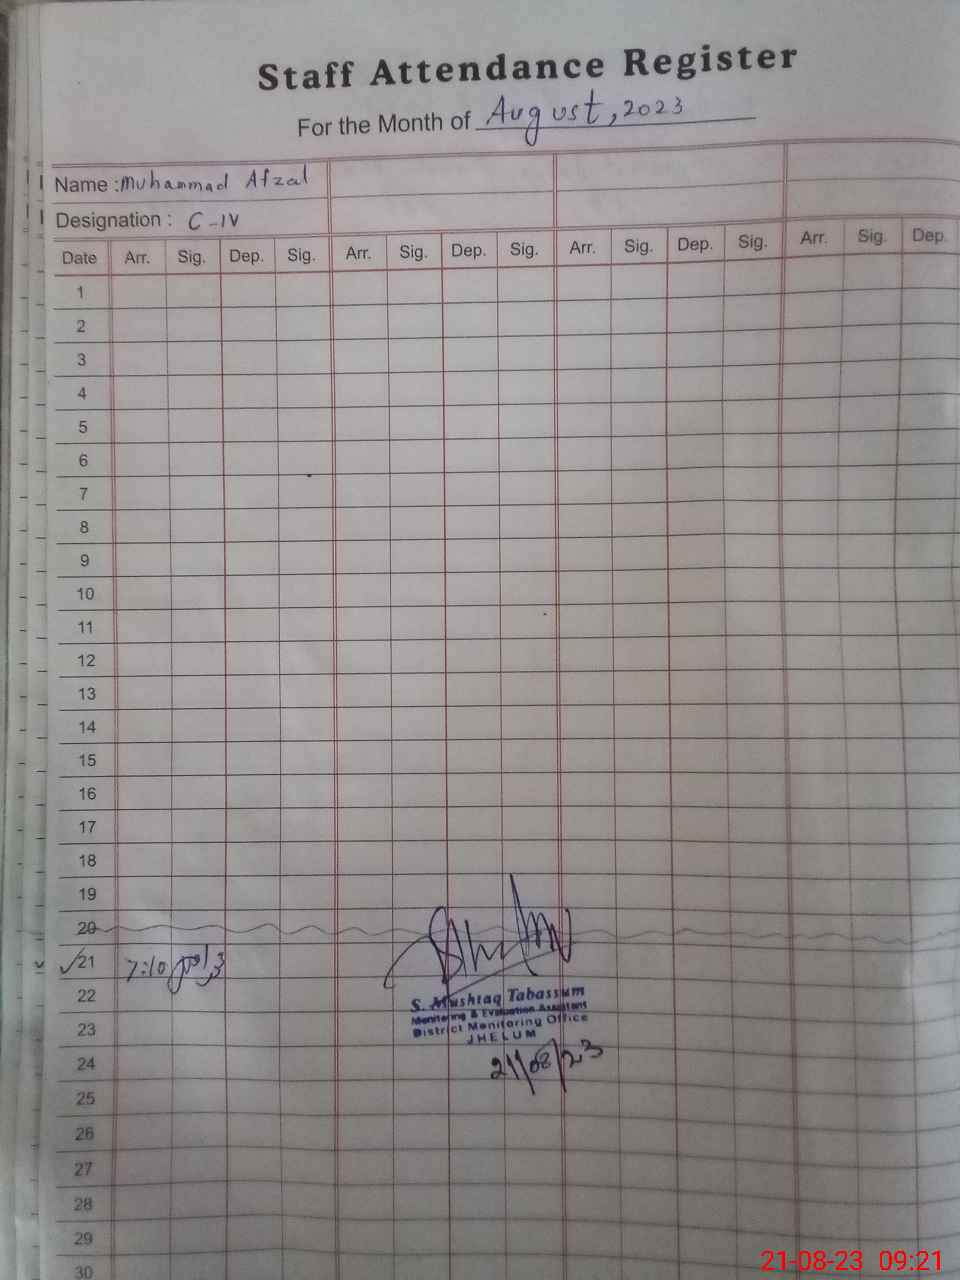 Staff Attendance Register
For the Month of August, 2023
Name : Muhammad Afzal
Designation : C-IV
Date Arr. Sig. Dep. Sig. Arr. Sig. Dep. Sig. Arr. Sig. Dep. Sig. Arr. Sig. Dep.
1
2
3
4
5
6
7
8
9
10
11
12
13
14
15
16
17
18
19
20
21 7:10
22
S. Mushtaq Tabassum
Monitoring & Evaluation Assistant
23
District Monitoring Office
JHELUM
24
21/08/23
25
26
27
28
29
30
21-08-23 09:21